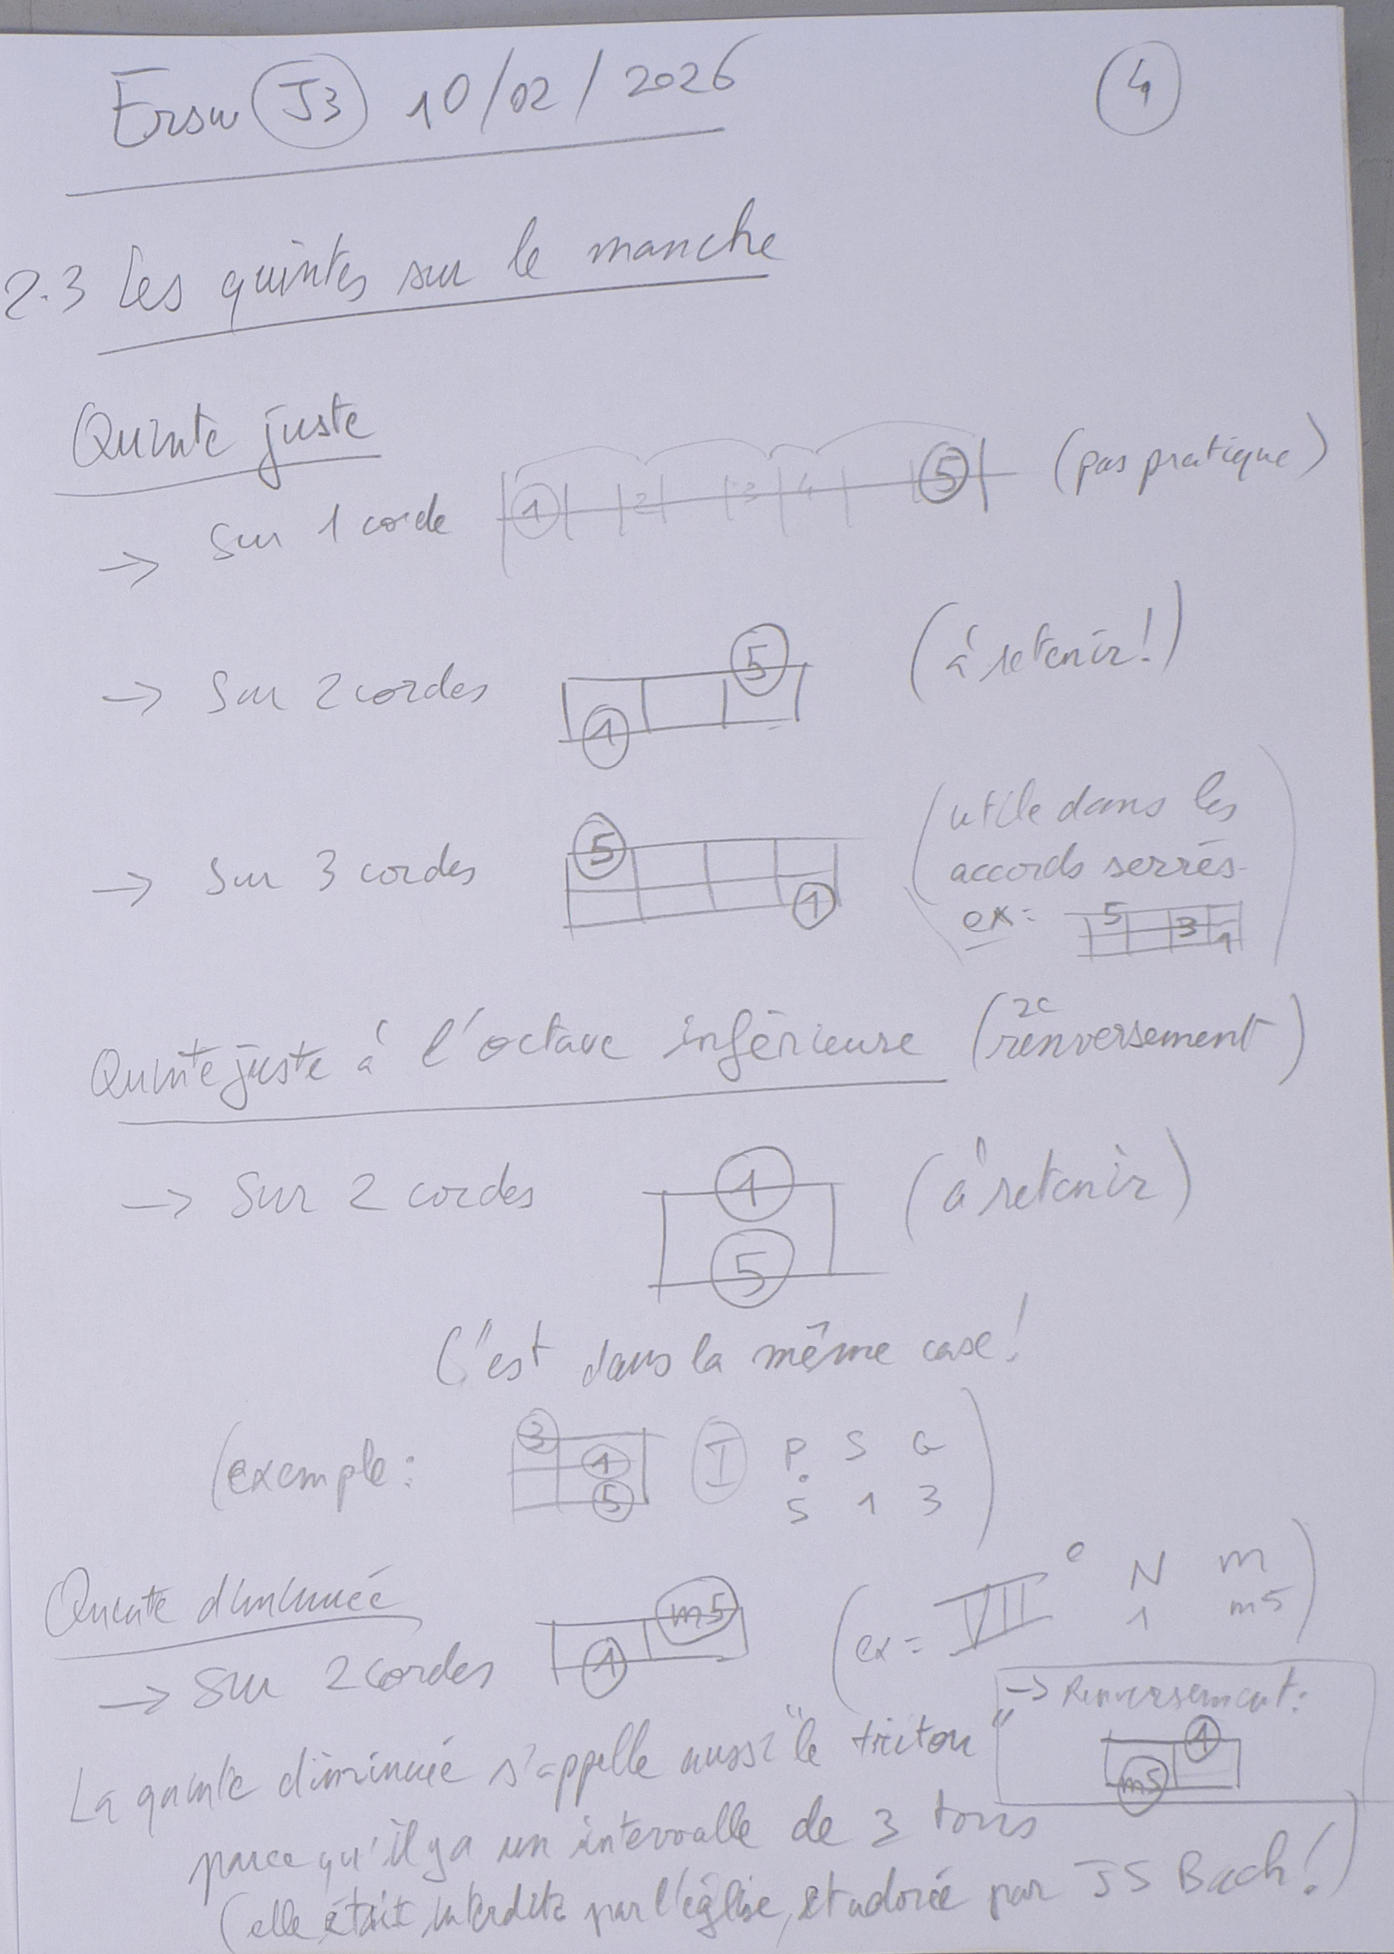 Ersw J3 10/02/2026
4
2.3 Les quintes sur le manche
Quinte juste
→ Sur 1 corde 1 2 3 4 5 (pas pratique)
→ Sur 2 cordes 5 (à retenir!)
1
→ Sur 3 cordes 5 1
(utile dans les
accords serrés.
ex: 5 3 1)
Quinte juste à l'octave inférieure (2e renversement)
→ Sur 2 cordes 1 (à retenir)
5
C'est dans la même case!
(exemple: 3 1 5 I P S G
5 1 3)
Quinte diminuée
→ Sur 2 cordes 1 m5 (ex= VII° N m
1 m5)
→ Renversement:
1
m5
La quinte diminuée s'appelle aussi "le triton"
parce qu'il y a un intervalle de 3 tons
(elle était interdite par l'église, et adorée par JS Bach!)